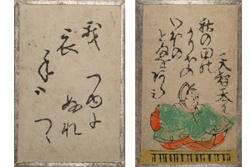 天智天
秋の田の
かりほの
いほの
とまをあらみ
我
衣
手
つゆに
ぬれ
つゝ